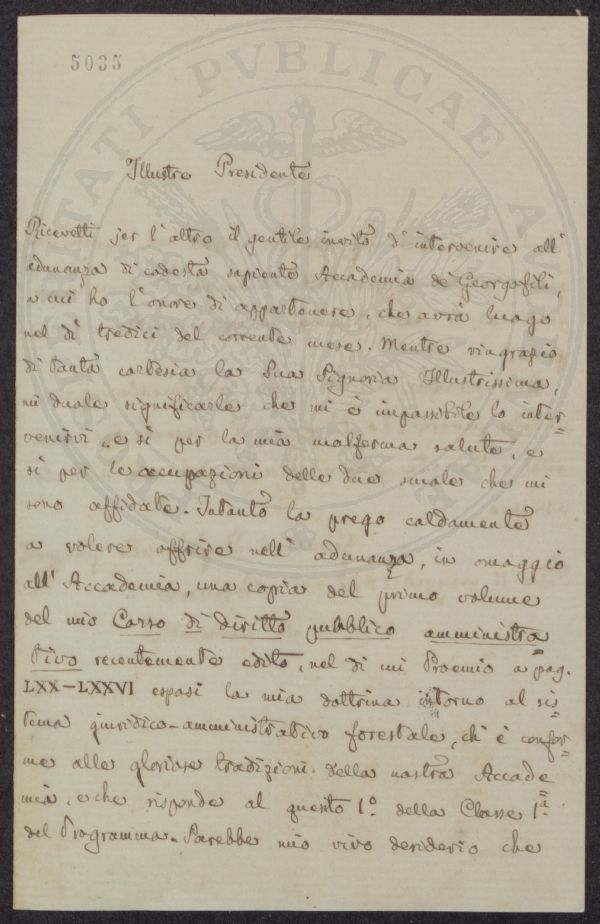 5035
Illustre Presidente
Ricevetti jer l'altro il gentile invito d'intervenire all'
adunanza di codesta sapiente Accademia de Georgofili,
a cui ho l'onore di appartenere, che avrà luogo
nel dì tredici del corrente mese. Mentre ringrazio
di tanta cortesia la Sua Signoria Illustrissima,
mi duole significarle che mi è impossibile lo inter=
venirvi, e sì per la mia malferma salute, e
sì per le occupazioni delle due scuole che mi
sono affidate. Intanto la prego caldamente
a volere offrire nell' adunanza, in omaggio
all' Accademia, una copia del primo volume
del mio Corso di diritto pubblico amministra=
tivo recentemente edito, nel di cui Proemio a pag.
LXX-LXXVI esposi la mia dottrina intorno al sis=
tema giuridico-amministrativo forestale, ch'è confor=
me alle gloriose tradizioni della nostra Accade=
mia, e che risponde al quesito 1º della Classe 1ª
del Programma. Sarebbe mio vivo desiderio che
STATI PVBLICAE